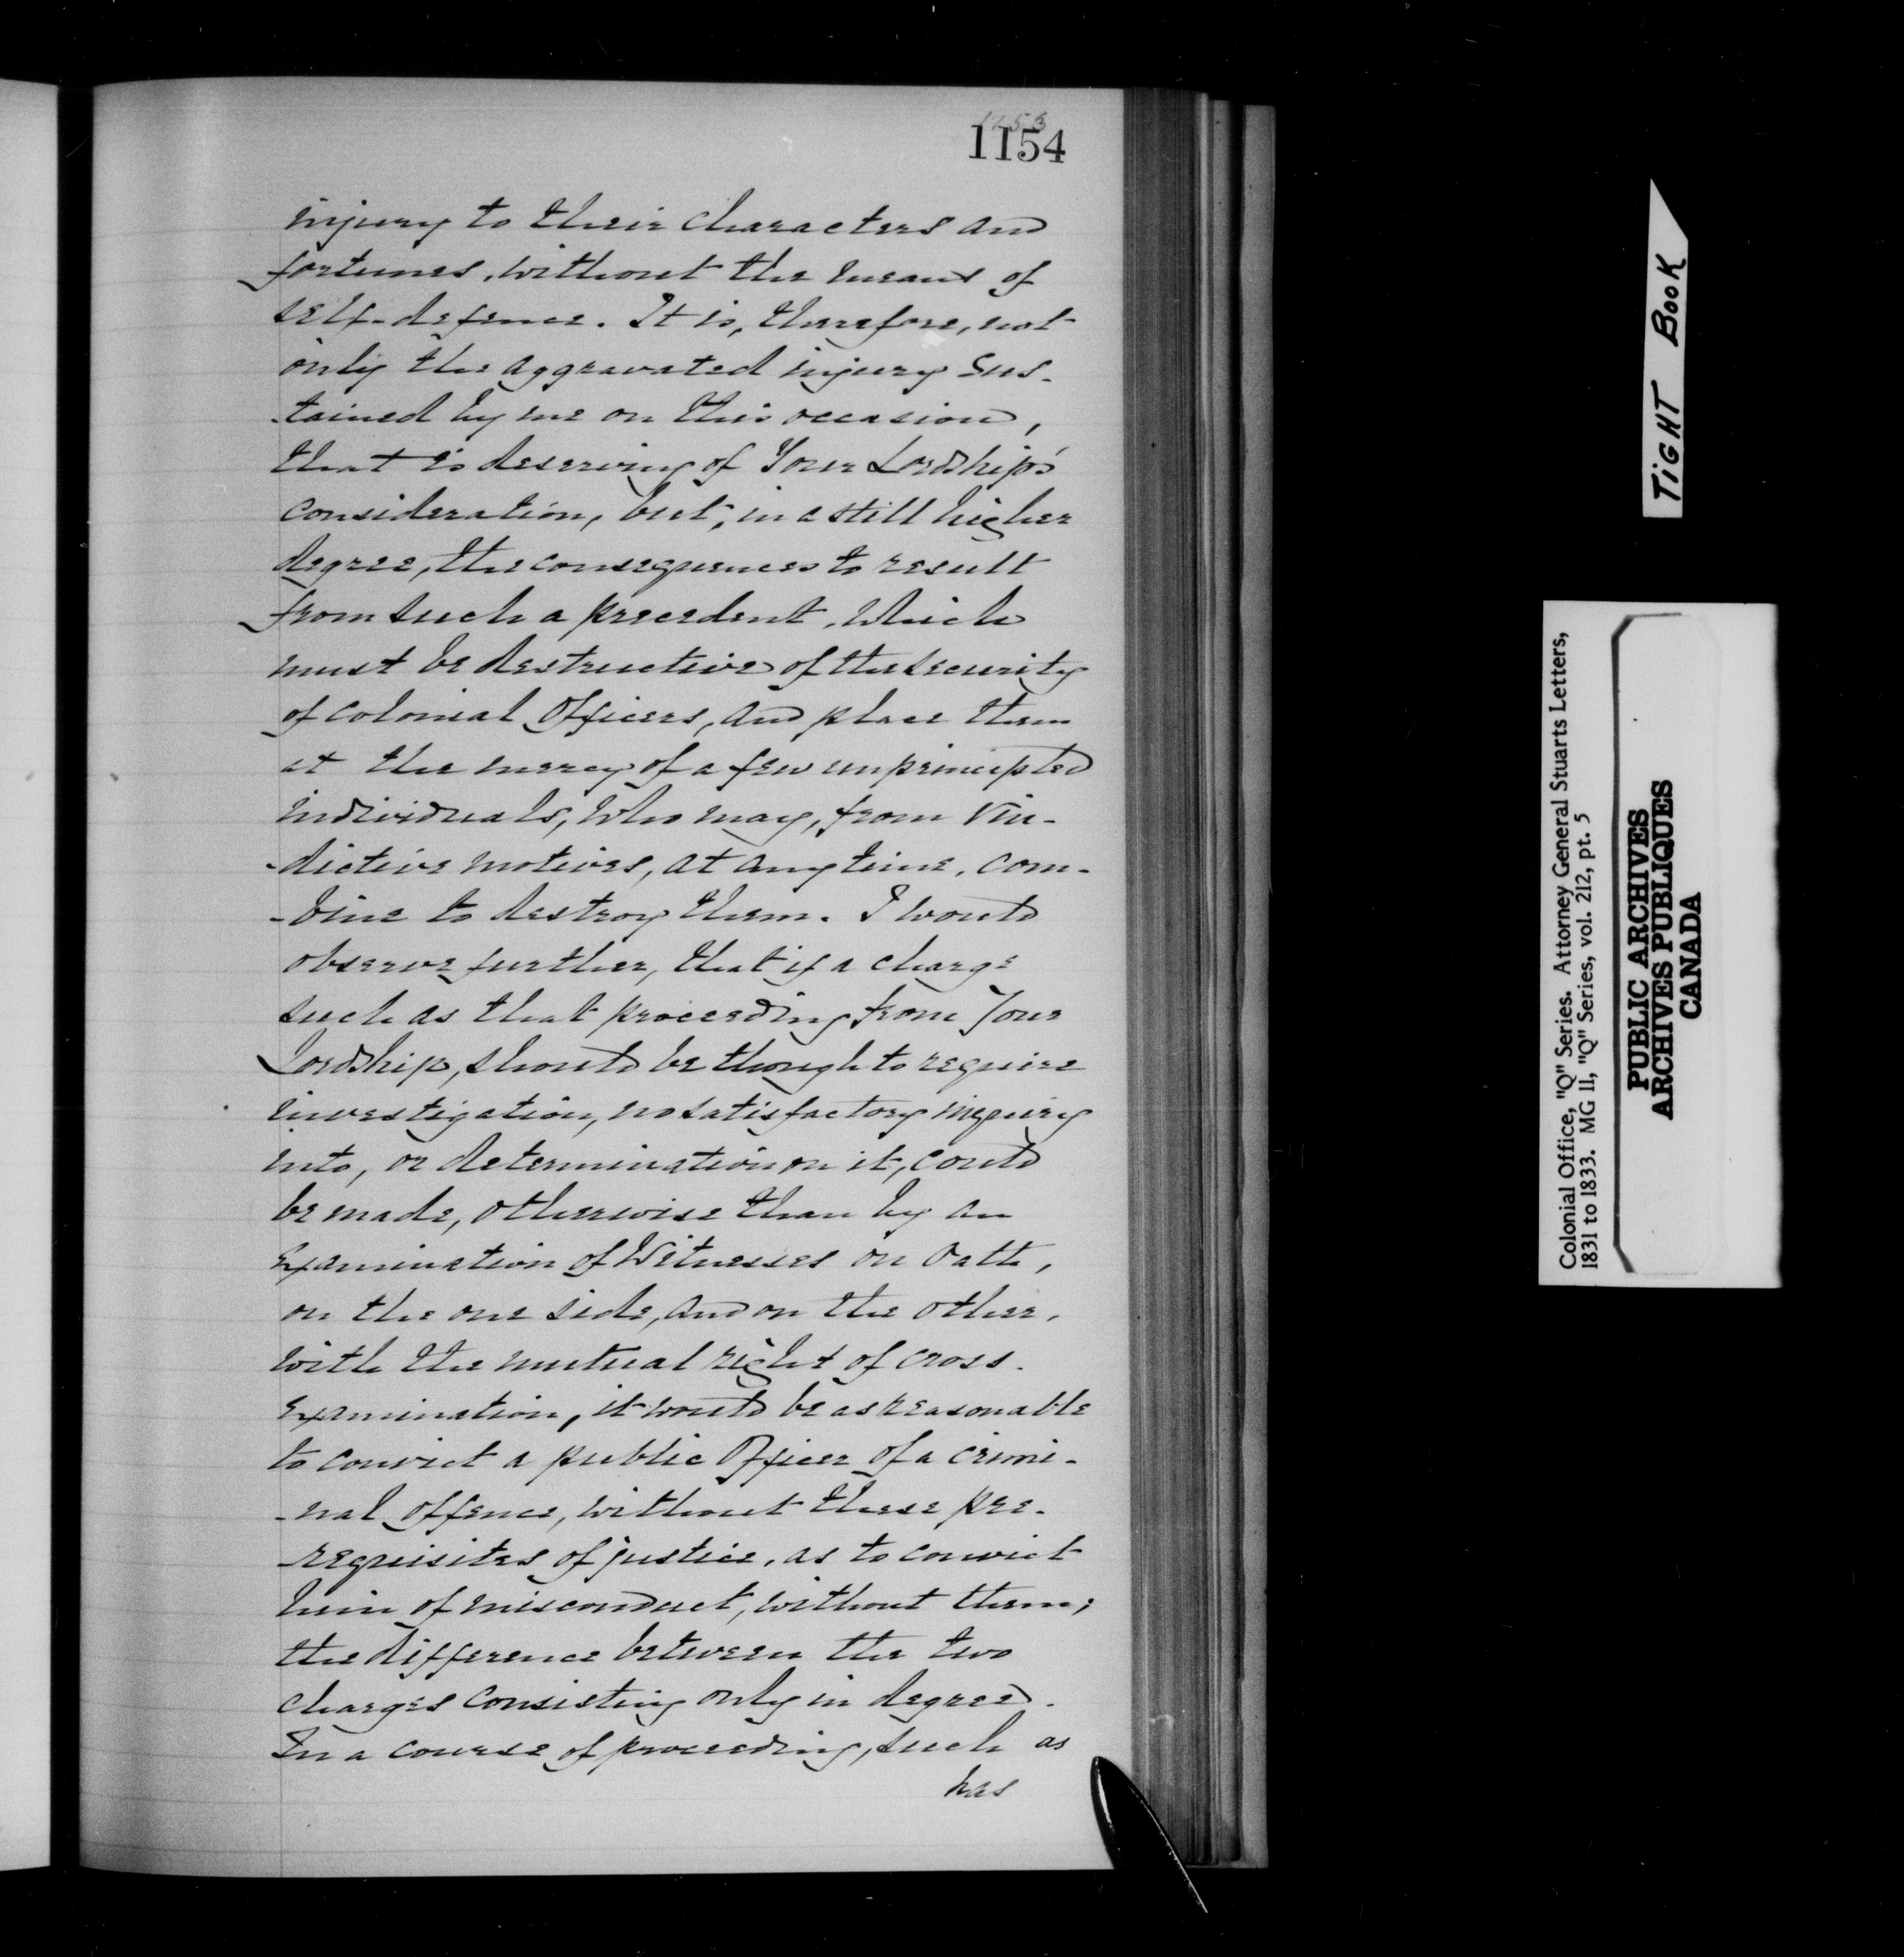 1153
1154
injury to their characters and
fortunes, without the means of
self-defence. It is, therefore, not
only the aggravated injury sus-
-tained by me on this occasion,
that is deserving of Your Lordship's
consideration, but, in a still higher
degree, the consequences to result
from such a precedent, which
must be destructive of the security
of Colonial Officers, and place them
at the mercy of a few unprincipled
individuals, who may, from vin-
-dictive motives, at any time, com-
-bine to destroy them. I would
observe further, that if a charge
such as that proceeding from Your
Lordship, should be though to require
investigation, no satisfactory inquiry
into, or determination on it, could
be made, otherwise than by an
examination of Witnesses on Oath,
on the one side, and on the other,
with the mutual right of cross-
examination, it would be as reasonable
to convict a public Officer of a crimi-
-nal offence, without these pre-
-requisites of justice, as to convict
him of misconduct, without them;
the difference between the two
charges consisting only in degree.
In a course of proceeding, such as
has
TIGHT BOOK
Colonial Office, "Q" Series. Attorney General Stuarts Letters,
1831 to 1833. MG 11, "Q" Series, vol. 212, pt. 5
PUBLIC ARCHIVES
ARCHIVES PUBLIQUES
CANADA